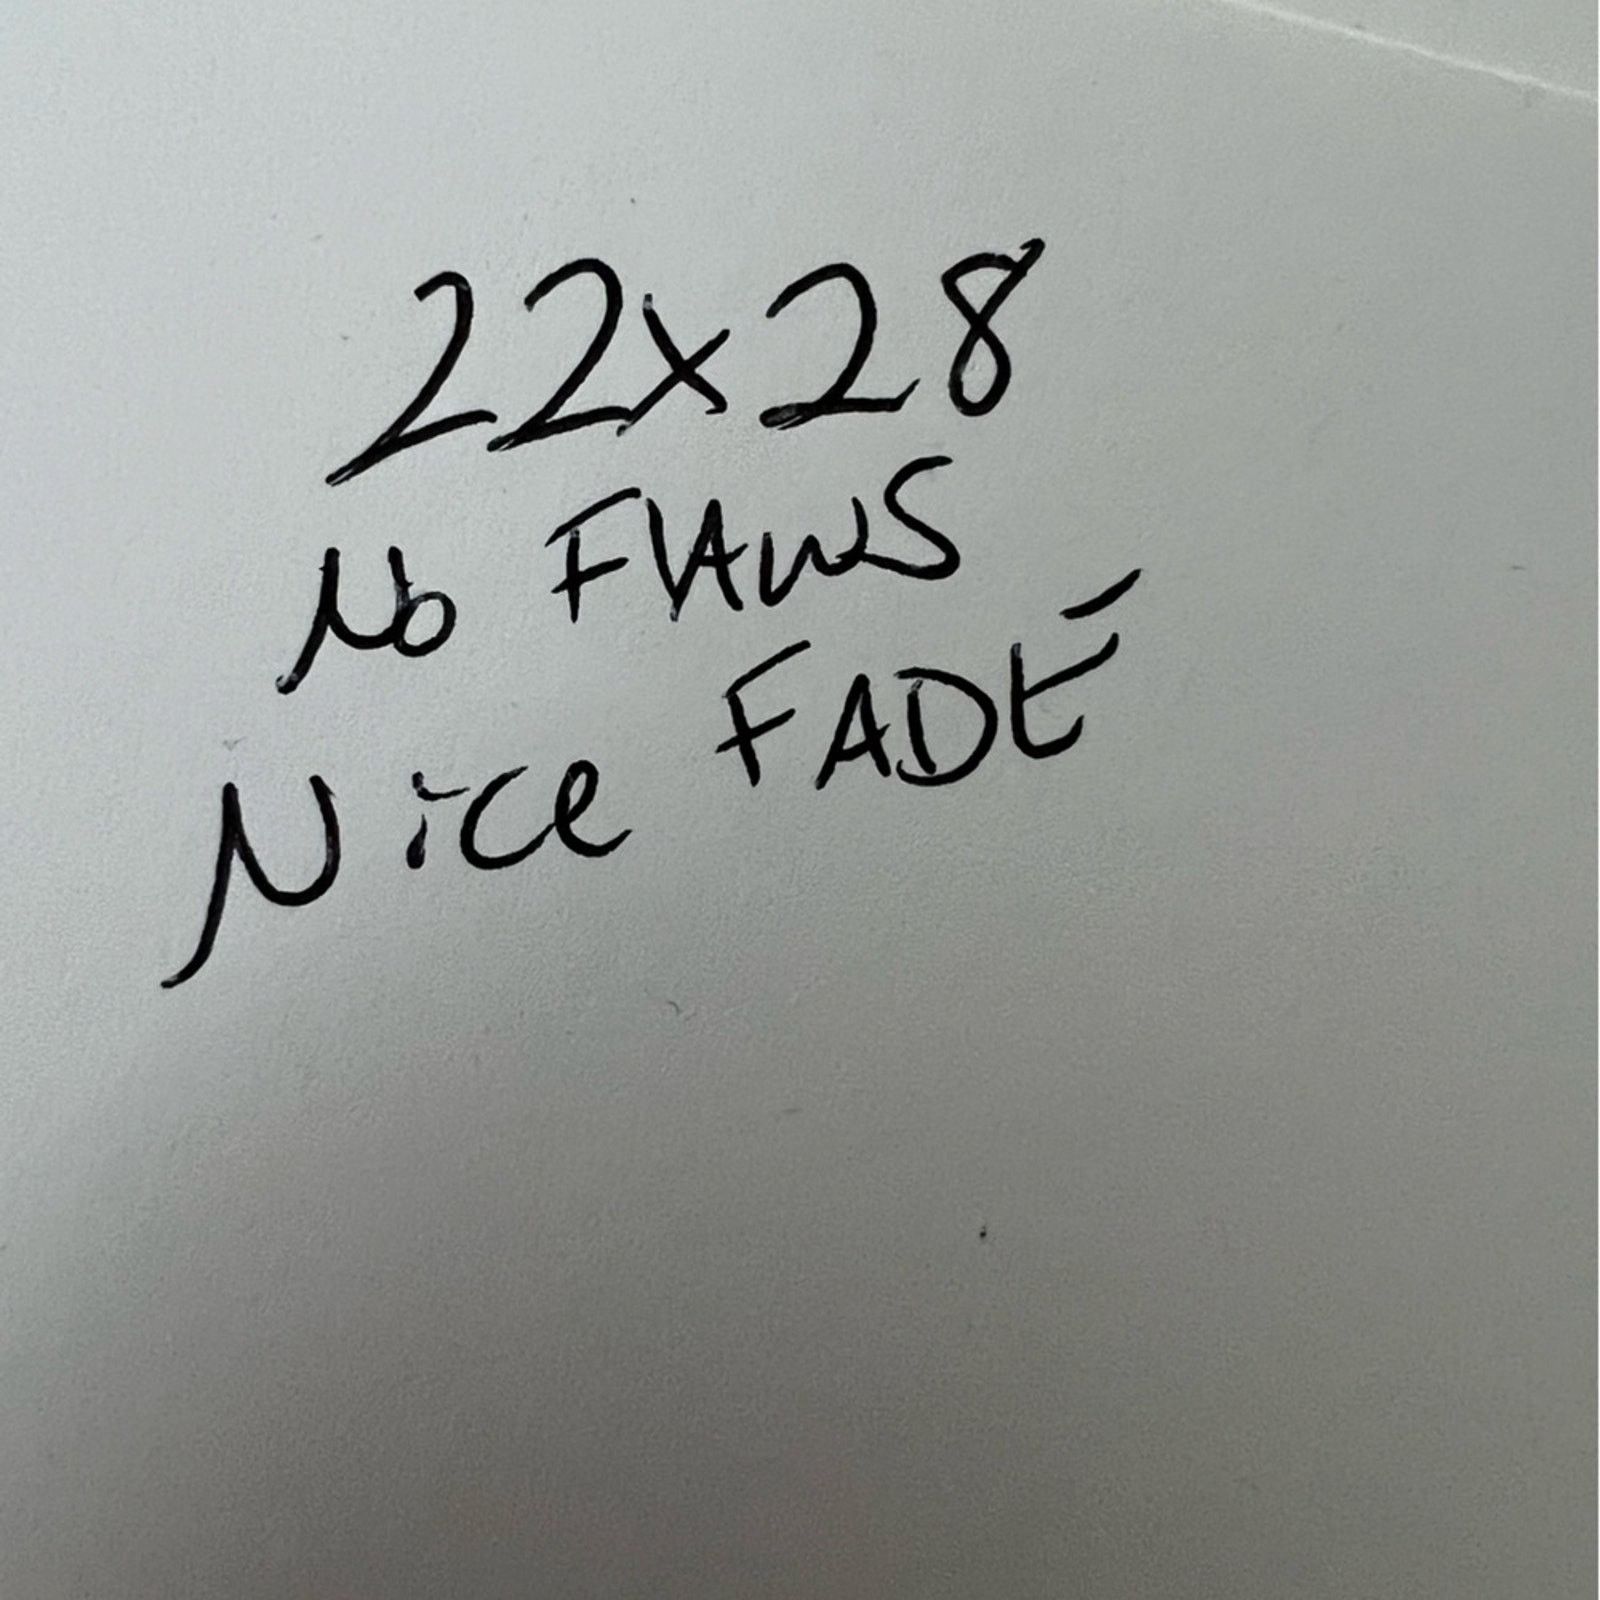 22x28
No FlAwS
Nice FADE